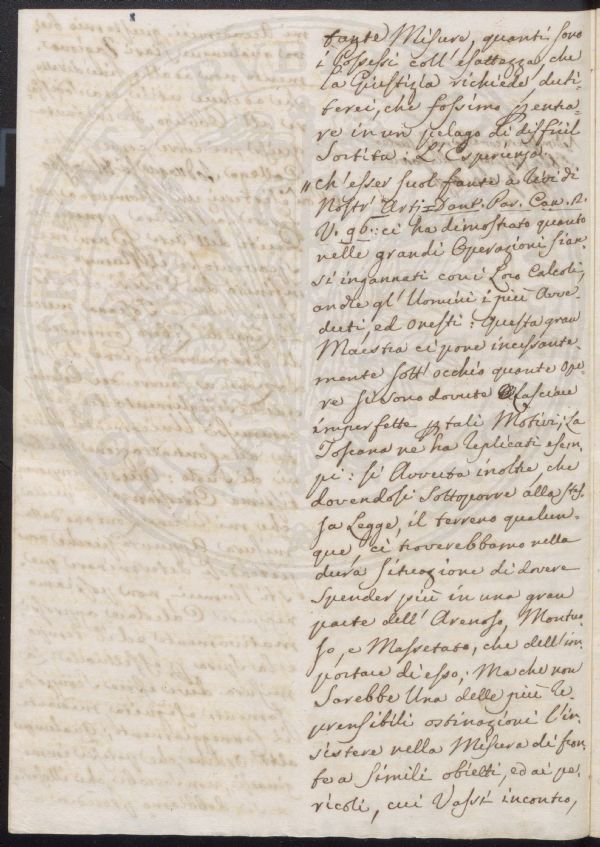 tante Misure, quanti sono
i Possessi coll'esattezza, che
la Giustizia richiede, duti-
terei, che fossimo p entra-
re in un pelago di difficil
Sortita: L'Esperienza,
"ch'esser suol fonte a rivi di
Nostr'Arti = Dant. Par. Can. 2.
V. 96 = ci ha dimostrato quanto
nelle grandi Operazioni sian-
si ingannati con i Loro Calcoli,
anche gl'Uomini i più Avve-
duti, ed onesti: Questa gran
Maestra ci pone incessante-
mente sott'occhio quante Ope-
re si sono dovute lasciare
imperfette p tali Motivi; La
Toscana ne ha replicati esem-
pi: si Avverta inoltre, che
dovendosi Sottoporre alla stes-
sa Legge, il terreno qualun-
que, ci troverebbamo nella
dura situazione di dovere
spender più in una gran
parte dell'Arenoso, Montuo-
so, e Massetato, che dell'im-
portare di esso; Ma che non
Sarebbe Una delle più re-
prensibili ostinazioni l'in-
sistere nella Misura di fron-
te a simili obietti, ed ai pe-
ricoli, cui Vassi incontro,